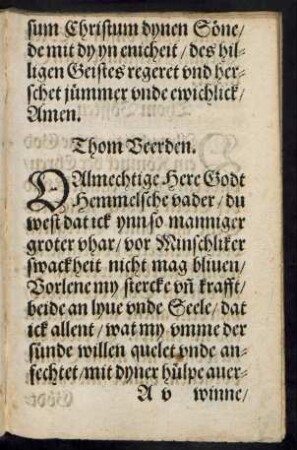 sum Christum dynen Söne/
de mit dy yn enicheit / des hil-
ligen Geistes regeret vnd her-
schet jümmer vnde ewichlick /
Amen.
Thom Veerden.
O Almechtige Here Godt
Hemmelsche vader / du
west dat ick ynn so manniger
groter vhar / vor Minschliker
swackheit nicht mag bliuen /
Vorlene my stercke vñ krafft /
beide an lyue vnde Seele / dat
ick allent / wat my vmme der
sünde willen quelet vnde an-
fechtet / mit dyner hülpe auer-
A v winne /